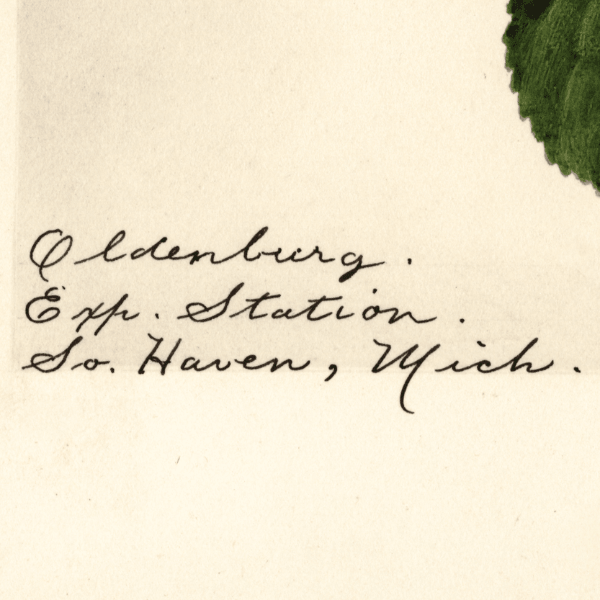 Oldenburg.
Exp. Station.
So. Haven, Mich.